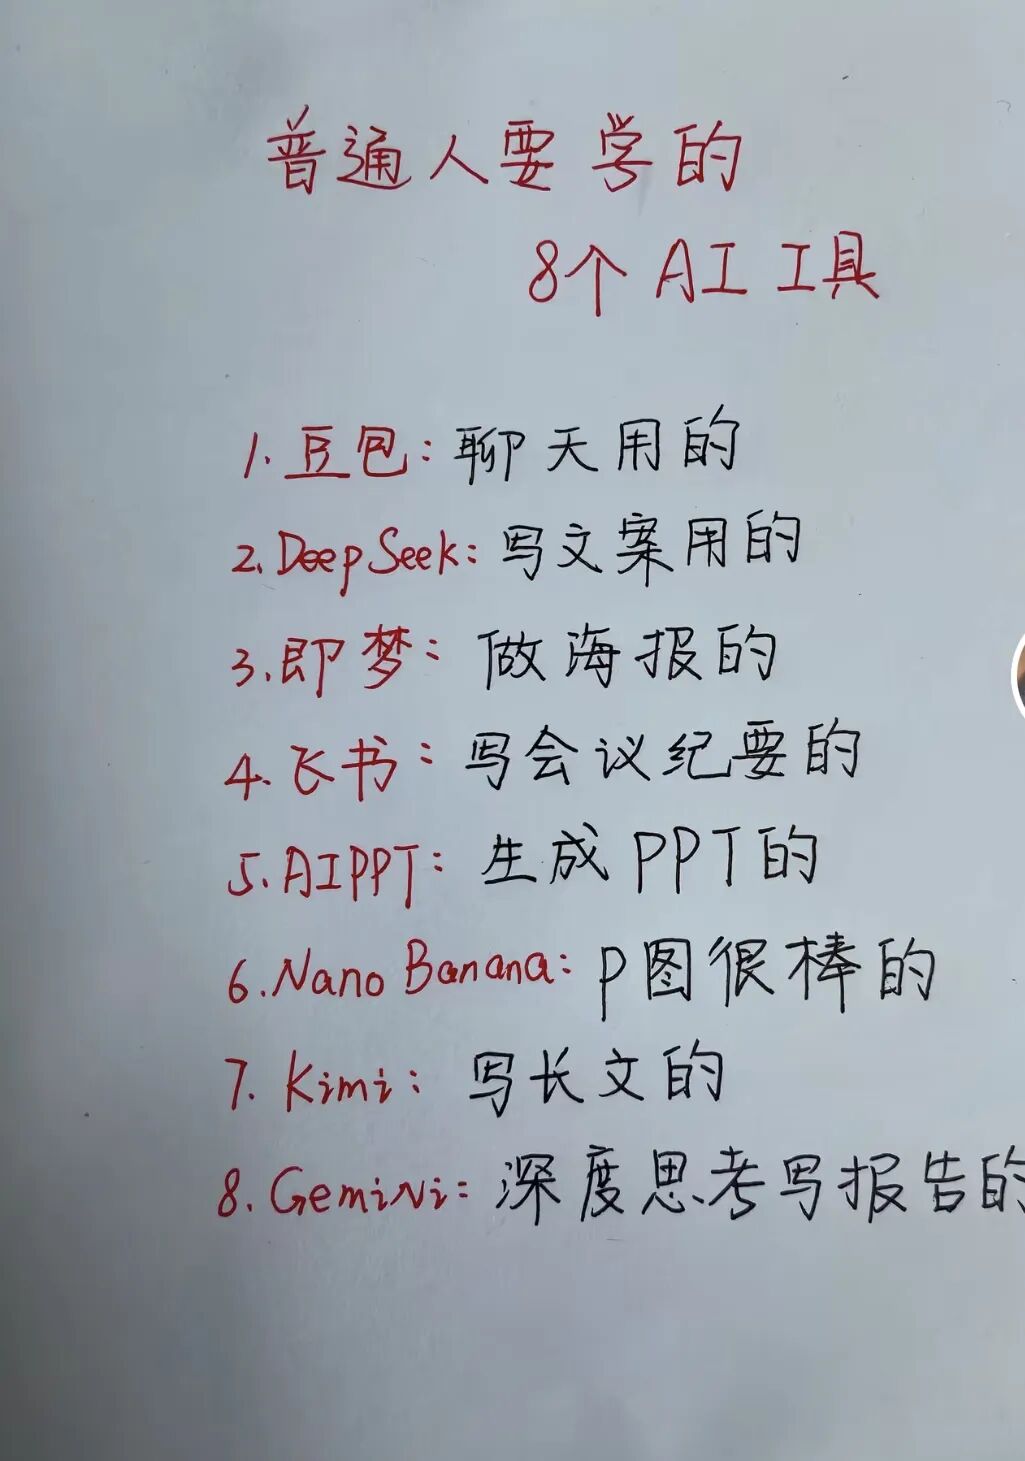 普通人要学的
8个AI工具
1.豆包:聊天用的
2.DeepSeek:写文案用的
3.即梦:做海报的
4.飞书:写会议纪要的
5.AIPPT:生成PPT的
6.Nano Banana:P图很棒的
7.Kimi:写长文的
8.GemiNi:深度思考写报告的